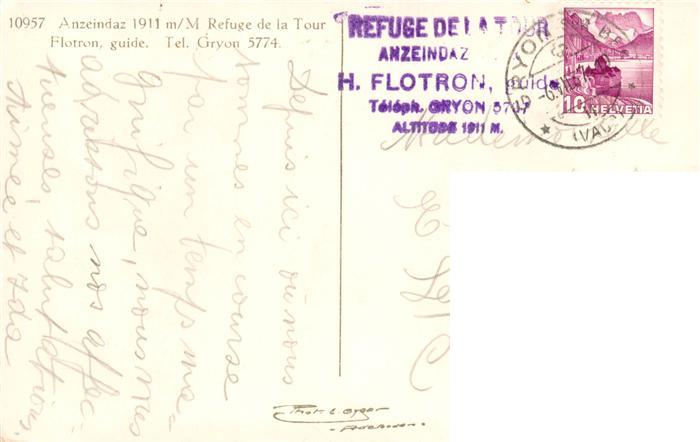 10957 Anzeindaz 1911 m/M Refuge de la Tour
Flotron, guide. Tel. Gryon 5774.
REFUGE DE LA TOUR
ANZEINDAZ
H. FLOTRON, Guide
Téléph. GRYON 5719
ALTITUDE 1911 M.
GRYON
(VAUD)
10 HELVETIA
Mademoiselle
Depuis ici où nous
sommes en course
par un temps ma-
gnifique, nous vous
adressons nos affec-
tueuses salutations.
Aimée et Ida
Phot. L. Gyger
Adelboden